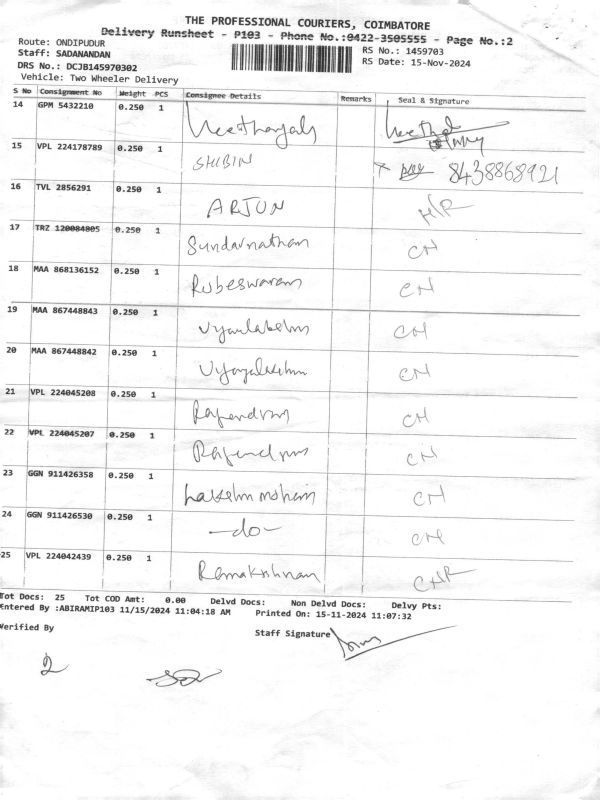 THE PROFESSIONAL COURIERS, COIMBATORE
Delivery Runsheet - P103 - Phone No.:0422-3505555 - Page No.:2
Route: ONDIPUDUR
RS No.: 1459703
Staff: SADANANDAN
RS Date: 15-Nov-2024
DRS No.: DCJB145970302
Vehicle: Two Wheeler Delivery
S No Consignment No Weight PCS Consignee Details Remarks Seal & Signature
14 GPM 5432210 0.250 1
15 VPL 224178789 0.250 1 SHIBIN 8438868921
16 TVL 2856291 0.250 1 ARJUN H/R
17 TRZ 120084805 0.250 1 Sundarnathan CH
18 MAA 868136152 0.250 1 Rubeswaran CH
19 MAA 867448843 0.250 1 CH
20 MAA 867448842 0.250 1 CH
21 VPL 224045208 0.250 1 CH
22 VPL 224045207 0.250 1 CH
23 GGN 911426358 0.250 1 CH
24 GGN 911426530 0.250 1 -do- CH
25 VPL 224042439 0.250 1 Ramakrishnan
Tot Docs: 25 Tot COD Amt: 0.00 Delvd Docs: Non Delvd Docs: Delvy Pts:
Entered By :ABIRAMIP103 11/15/2024 11:04:18 AM Printed On: 15-11-2024 11:07:32
Verified By
Staff Signature
2